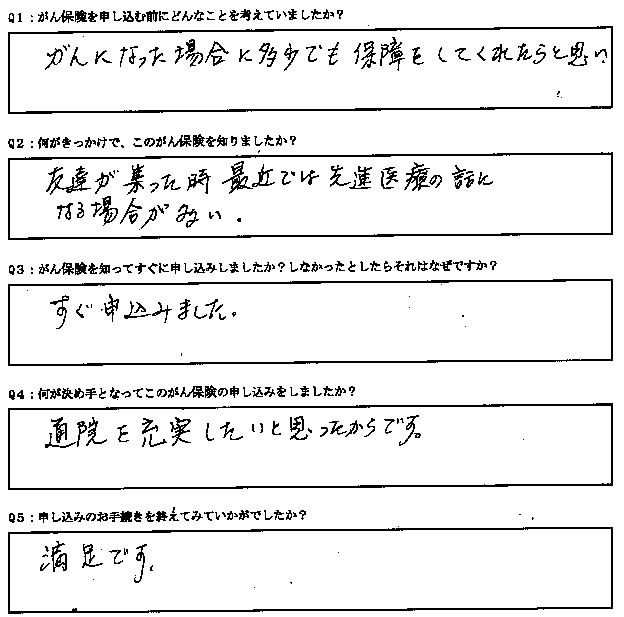 Q1：がん保険を申し込む前にどんなことを考えていましたか？
がんになった場合に多少でも保障をしてくれたらと思い
Q2：何がきっかけで、このがん保険を知りましたか？
友達が集った時最近では先進医療の話に
なる場合が多い。
Q3：がん保険を知ってすぐに申し込みしましたか？しなかったとしたらそれはなぜですか？
すぐ申込みました。
Q4：何が決め手となってこのがん保険の申し込みをしましたか？
通院を充実したいと思ったからです。
Q5：申し込みのお手続きを終えてみていかがでしたか？
満足です。